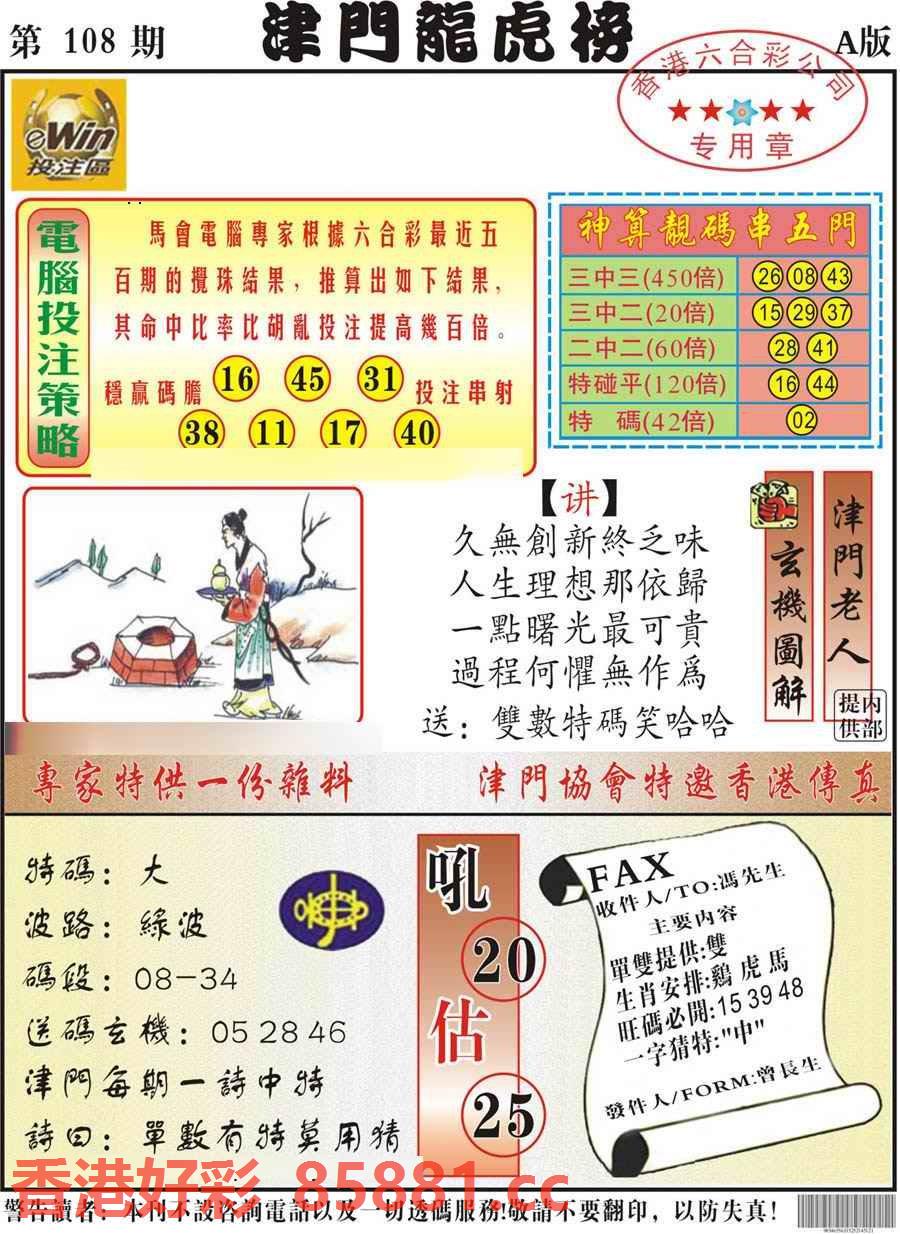 第 108 期
津門龍虎榜
A版
香港六合彩公司
★★★★
专用章
eWin
投注區
電腦投注策略
馬會電腦專家根據六合彩最近五
百期的攪珠結果，推算出如下結果，
其命中比率比胡亂投注提高幾百倍。
穩贏碼膽 16 45 31 投注串射
38 11 17 40
神算靚碼串五門
三中三(450倍) 26 08 43
三中二(20倍) 15 29 37
二中二(60倍) 28 41
特碰平(120倍) 16 44
特 碼(42倍) 02
【讲】
久無創新終乏味
人生理想那依歸
一點曙光最可貴
過程何懼無作爲
送：雙數特碼笑哈哈
玄機圖解
津門老人
内部提供
專家特供一份雜料
津門協會特邀香港傳真
特碼：大
波路：綠波
碼段：08-34
送碼玄機：05 28 46
津門每期一詩中特
詩曰：單數有特莫用猜
吼
20
估
25
FAX
收件人/TO:馮先生
主要内容
單雙提供:雙
生肖安排:鷄虎馬
旺碼必開:15 39 48
一字猜特:"中"
發件人/FORM:曾長生
香港好彩 85881.cc
警告讀者：本刊不設咨詢電話以及一切透碼服務!敬請不要翻印，以防失真！